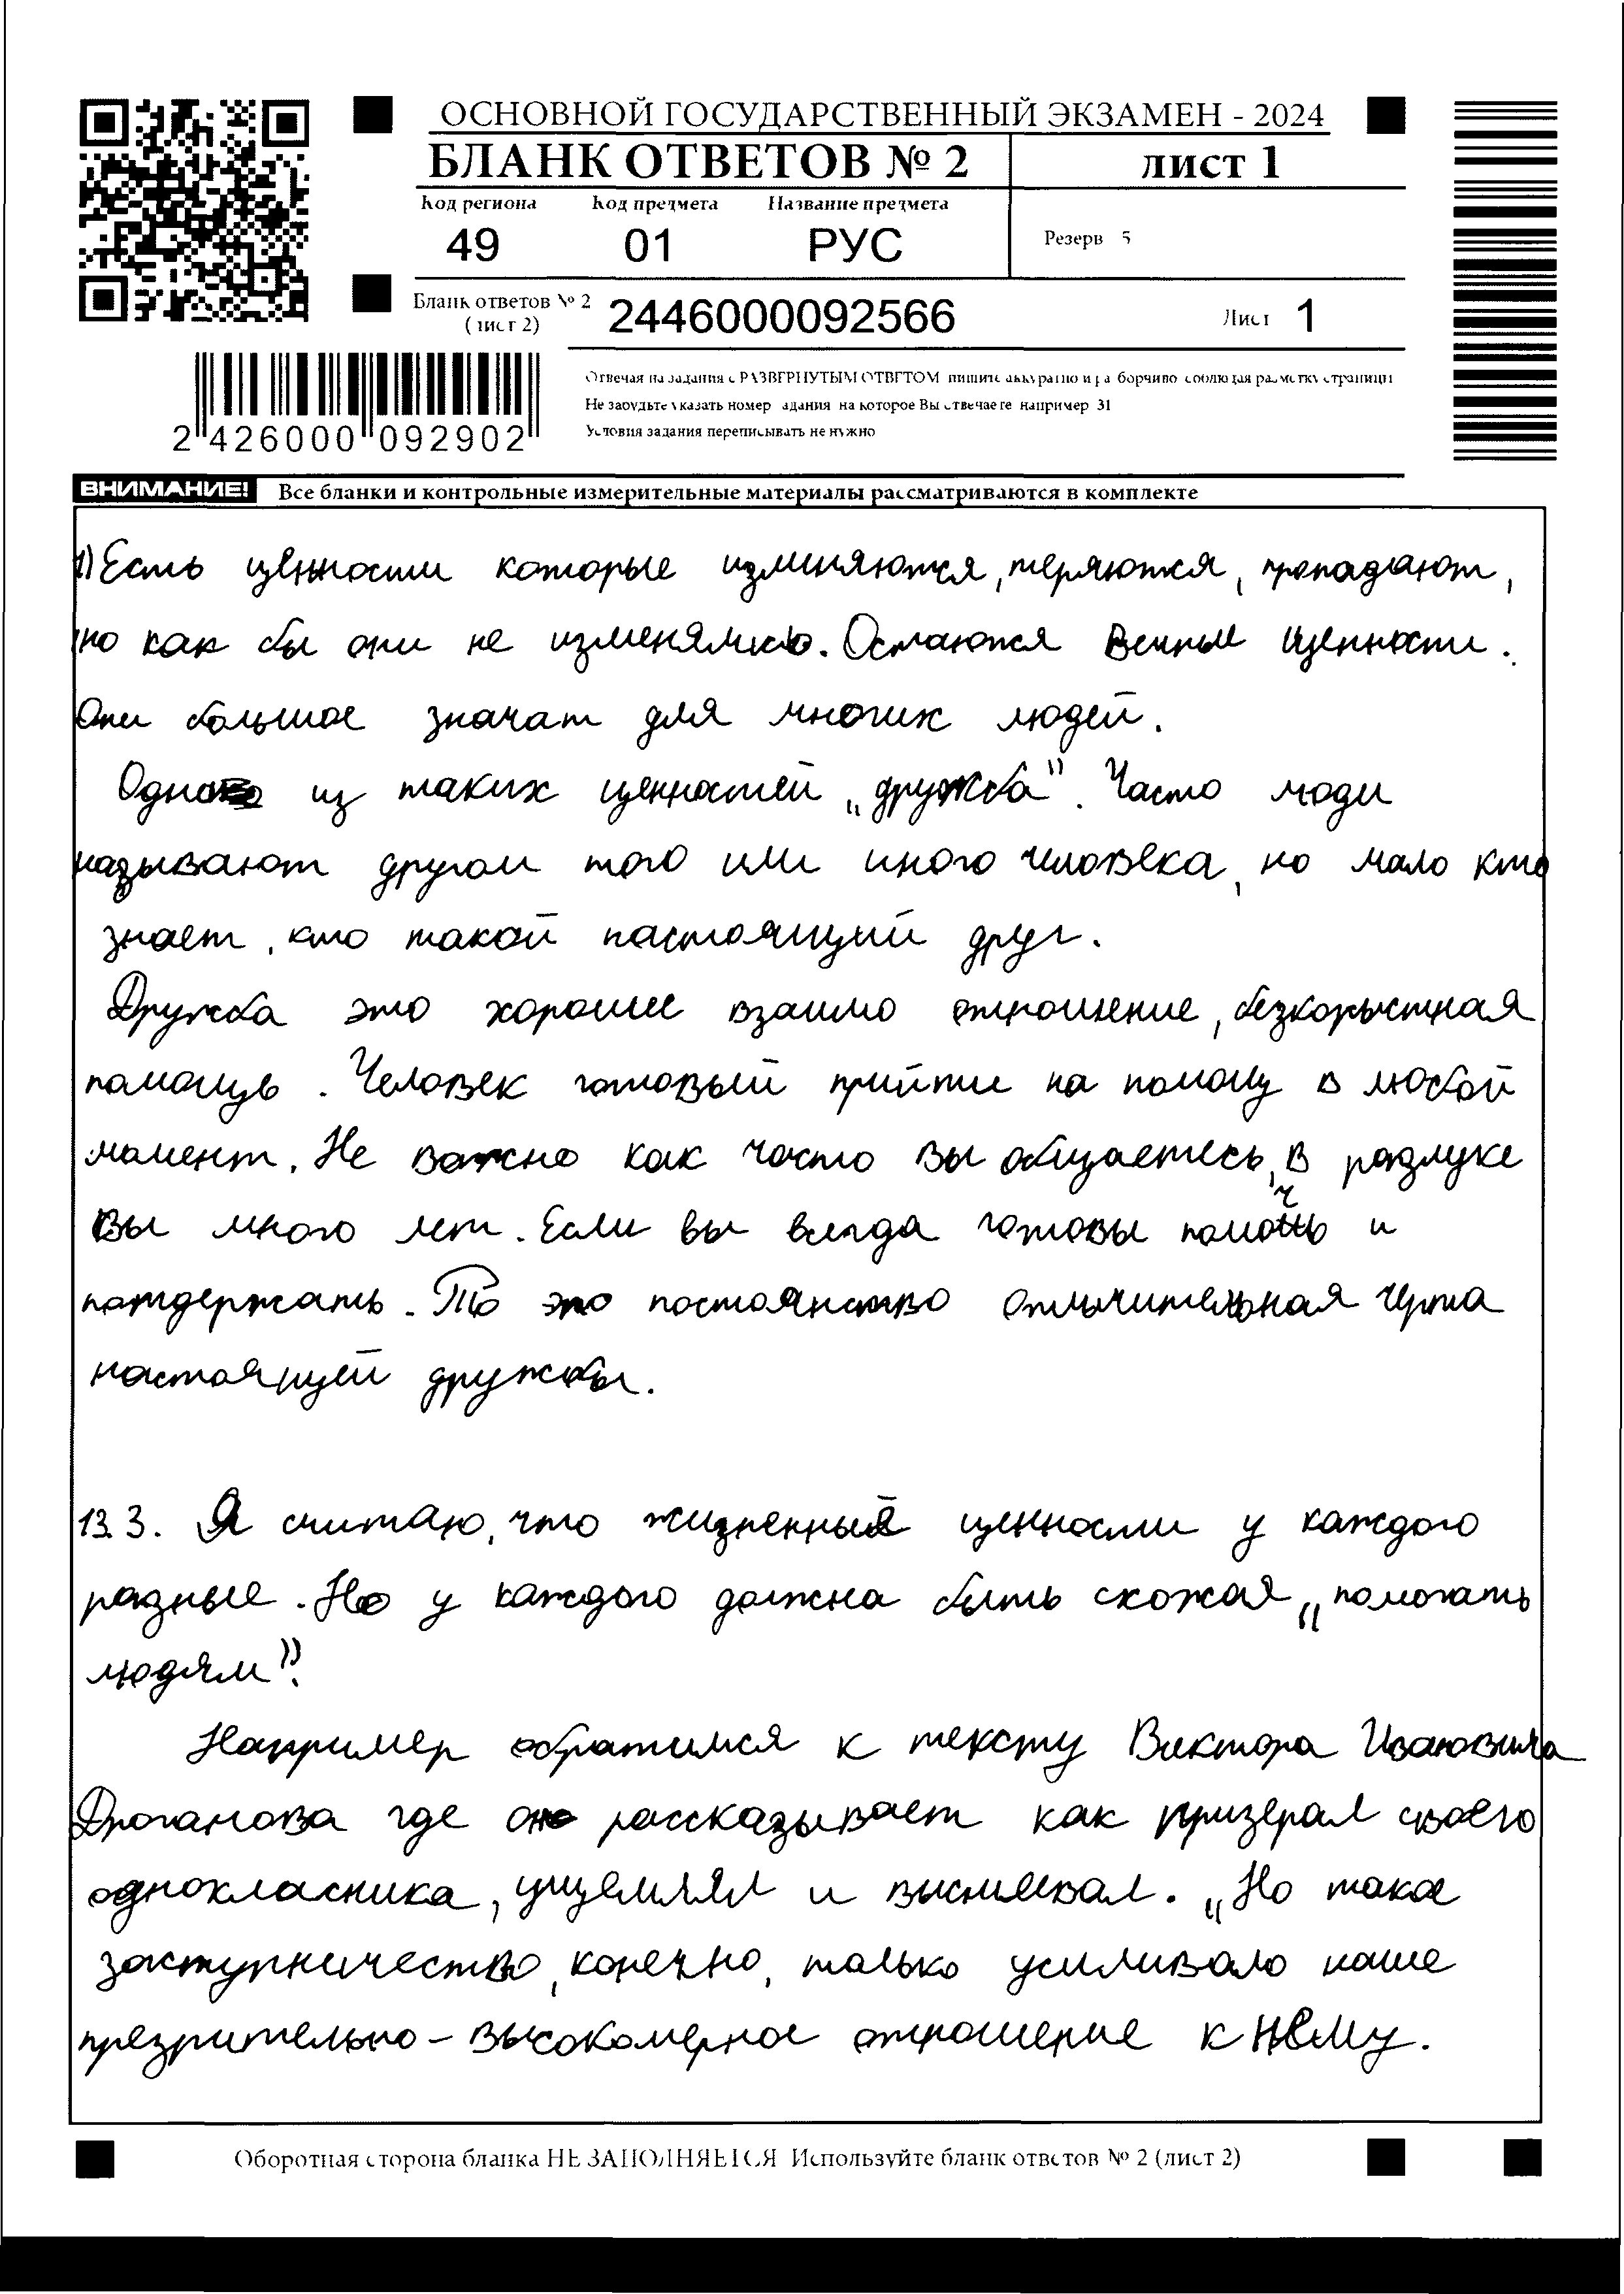 ОСНОВНОЙ ГОСУДАРСТВЕННЫЙ ЭКЗАМЕН - 2024
БЛАНК ОТВЕТОВ № 2 лист 1
Код региона Код предмета Название предмета
49 01 РУС Резерв 5
Бланк ответов № 2 (лист 2) 2446000092566 Лист 1
Отвечая на задания с РАЗВЕРНУТЫМ ОТВЕТОМ пишите аккуратно и разборчиво соблюдая разметку страницы
Не забудьте указать номер задания на которое Вы отвечаете например 31
Условия задания переписывать не нужно
2 426000 092902
ВНИМАНИЕ! Все бланки и контрольные измерительные материалы рассматриваются в комплекте
1) Есть ценности которые изменяются, теряются, пропадают,
но как бы они не изменялись. Остаются вечные ценности.
Они большое значат для многих людей.
Одно из таких ценностей „дружба". Часто люди
называют другом того или иного человека, но мало кто
знает, кто такой настоящий друг.
Дружба это хорошее взаимо отношение, безкорыстная
помощь. Человек готовый прийти на помощ в любой
момент. Не важно как часто вы общаетесь, в разлуке
вы много лет. Если вы всегда готовы помочь и
потдержать. То это постоянство отличительная черта
настоящей дружбы.
13.3. Я считаю, что жизненный ценности у каждого
разные. Но у каждого должна быть схожая „помогать
людям".
Например обратимся к тексту Виктора Ивановича
Дроганова где он рассказывает как призерал своего
однокласника, ущемлял и высмеивал. „Но такое
заступничество, конечно, только усиливало наше
презрительно-высокомерное отношение к нему.
Оборотная сторона бланка НЕ ЗАПОЛНЯЕТСЯ Используйте бланк ответов № 2 (лист 2)